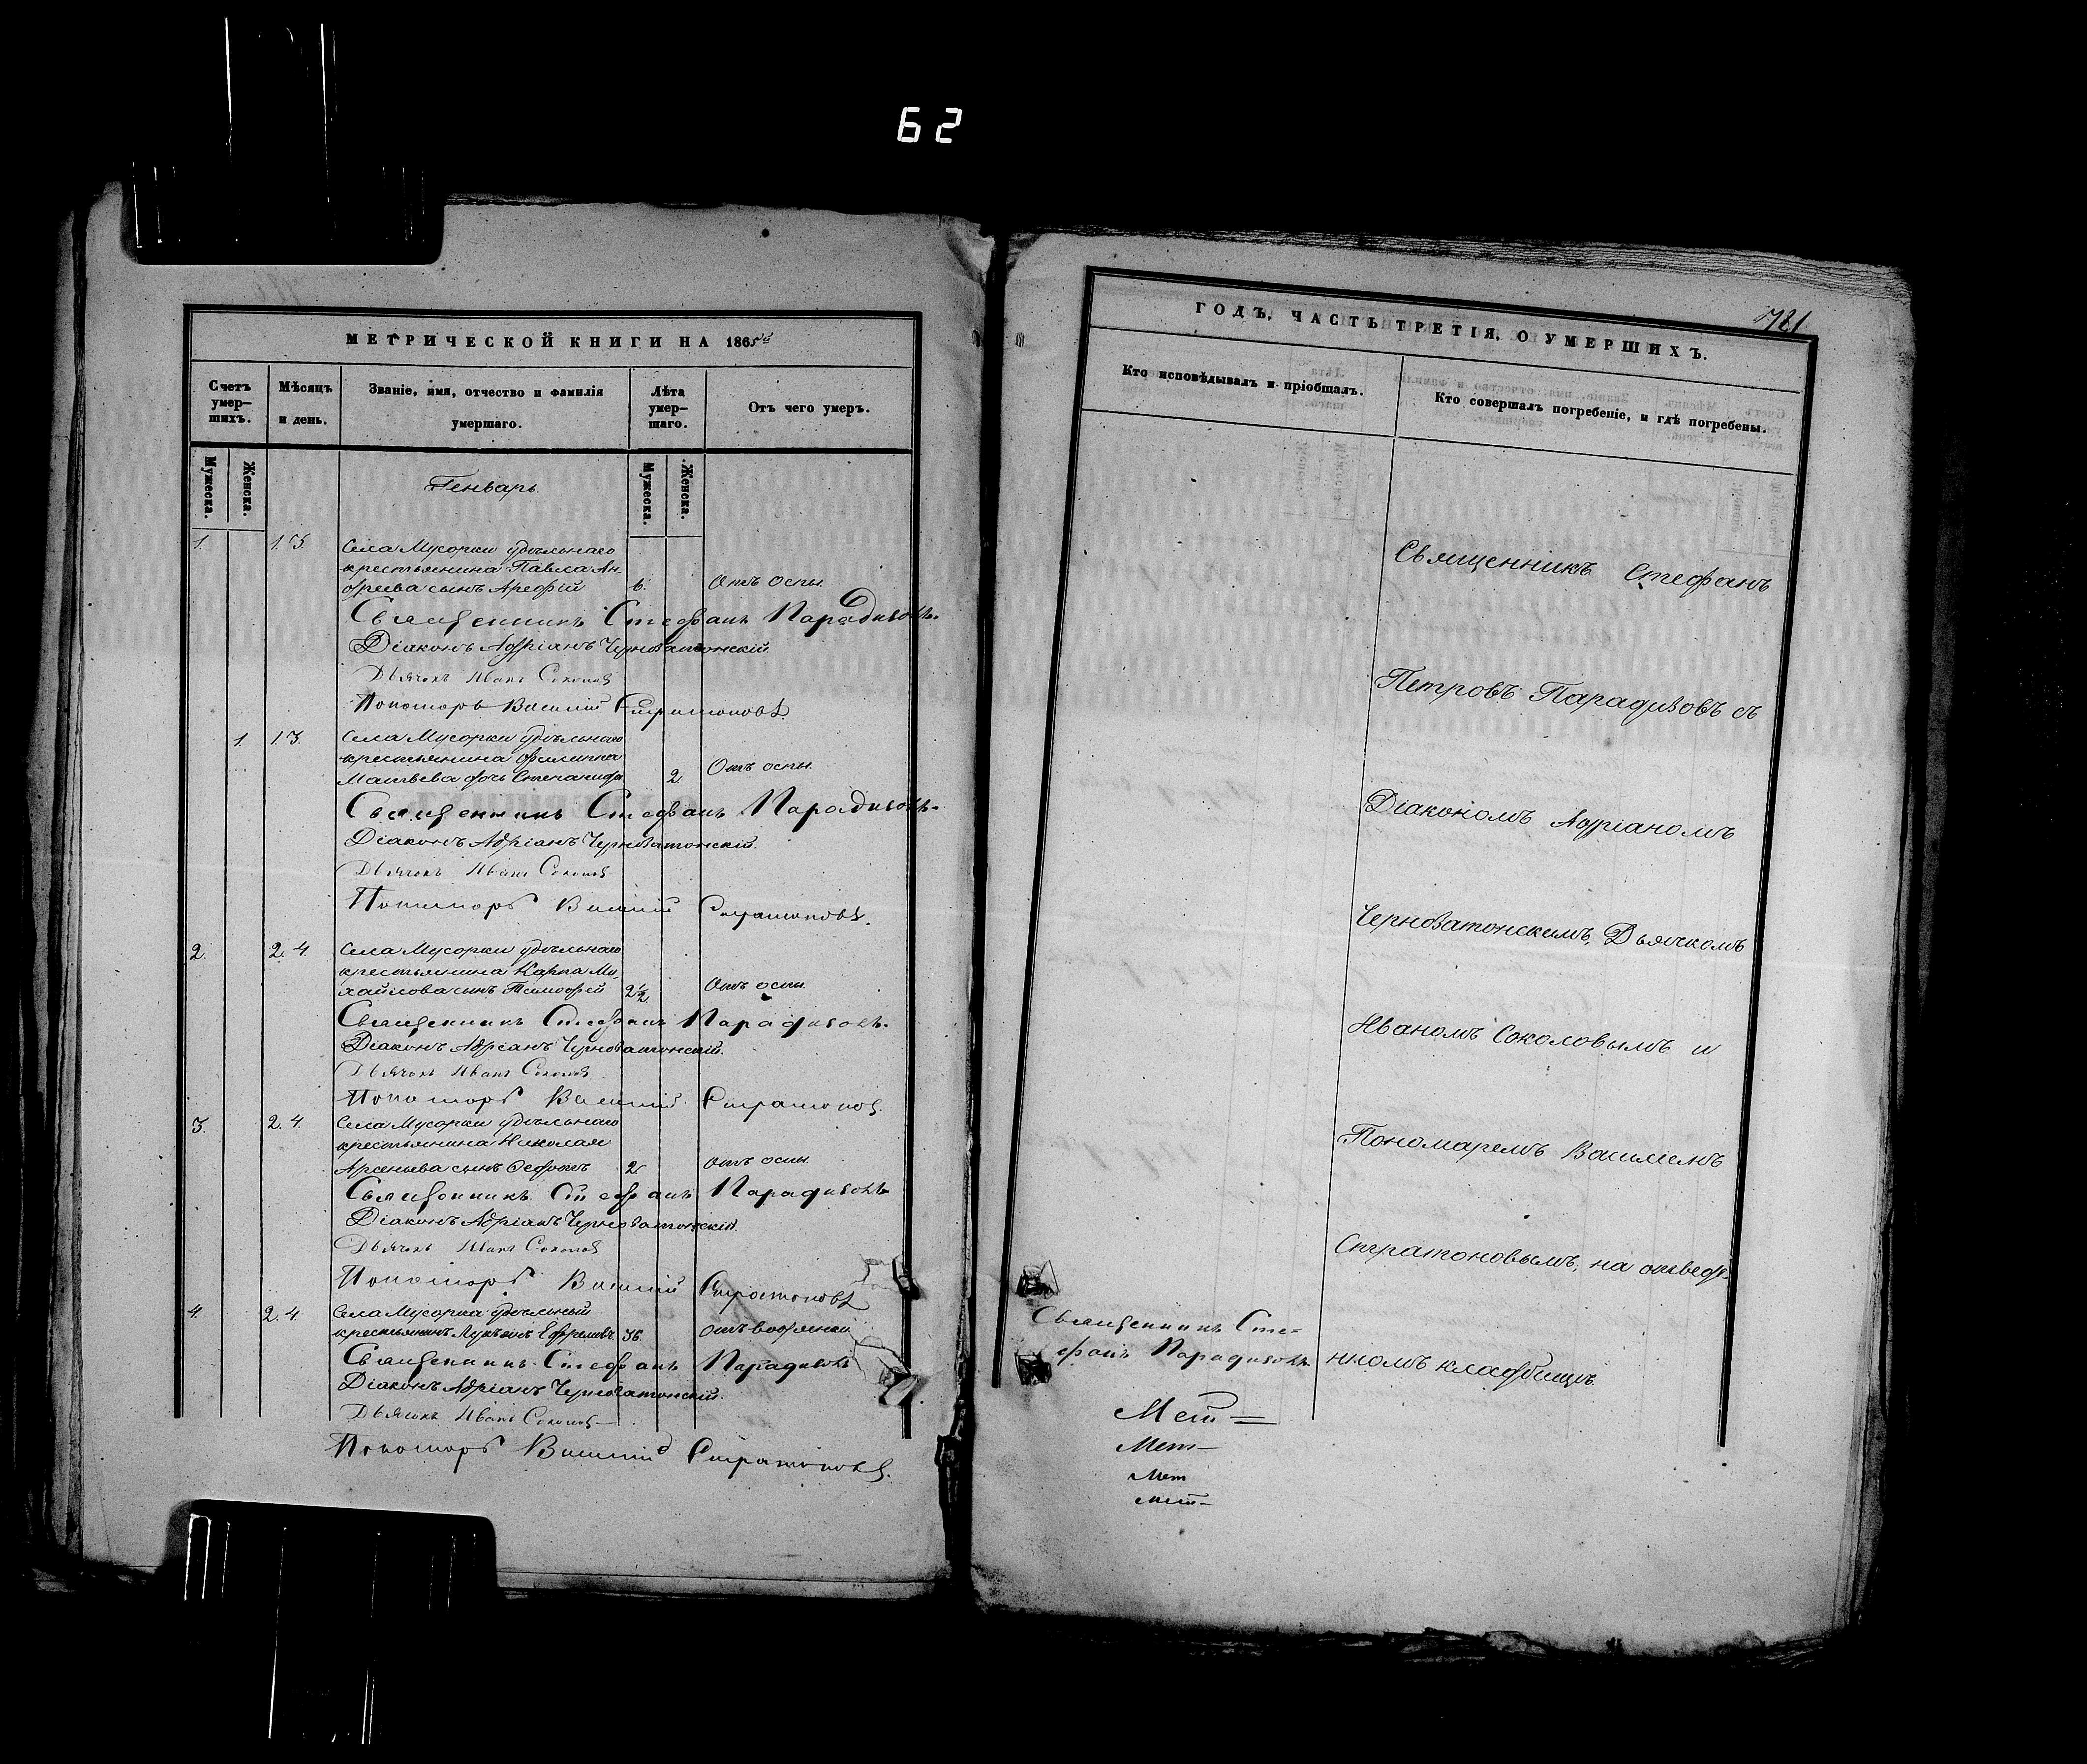 62
МЕТРИЧЕСКОЙ КНИГИ НА 1865й
Счетъ умер-шихъ.
Мѣсяцъ и день.
Званіе, имя, отчество и фамилія умершаго.
Лѣта умер-шаго.
Отъ чего умеръ.
Мужеска.
Женска.
Генварь.
Мужеска.
Женска.
1. 1. 3. Села Мусорки удѣльнаго
крестьянина Павла Ан-
дреева сынъ Арефій 6. Отъ оспы
Священникъ Стефанъ Парадизовъ.
Діаконъ Адріанъ Чернозатонскій.
Дьячокъ Иванъ Соколовъ
Пономарь Василій Стратоновъ.
1. 1. 3. Села Мусорки удѣльнаго
крестьянина Филиппа
Матвѣева дочь Степанида 2. Отъ оспы.
Священникъ Стефанъ Парадизовъ.
Діаконъ Адріанъ Чернозатонскій.
Дьячокъ Иванъ Соколовъ
Пономарь Василій Стратоновъ.
2. 2. 4. Села Мусорки удѣльнаго
крестьянина Карпа Ми-
хайлова сынъ Тимофей 2½ Отъ оспы.
Священникъ Стефанъ Парадизовъ.
Діаконъ Адріанъ Чернозатонскій.
Дьячокъ Иванъ Соколовъ
Пономарь Василій Стратоновъ.
3. 2. 4. Села Мусорки удѣльнаго
крестьянина Николая
Арсеньева сынъ 2. отъ оспы.
Священникъ Стефанъ Парадизовъ
Діаконъ Адріанъ Чернозатонскій.
Дьячокъ Иванъ Соколовъ
Пономарь Василій Стратоновъ
4. 2. 4. Села Мусорка удѣльный
крестьянинъ Лукьянъ Ефремовъ. 36. отъ водянки
Священникъ Стефанъ Парадизовъ
Діаконъ Адріанъ Чернозатонскій.
Дьячокъ Иванъ Соколовъ
Пономарь Василій Стратоновъ.
781
ГОДЪ, ЧАСТЬ ТРЕТІЯ, О УМЕРШИХЪ.
Кто исповѣдывалъ и пріобщалъ.
Кто совершалъ погребеніе, и гдѣ погребены.
Священникъ Стефанъ
Петровъ Парадизовъ съ
Діакономъ Адріаномъ
Чернозатонскимъ, Дьячкомъ
Иваномъ Соколовымъ и
Пономаремъ Василіемъ
Стратоновымъ, на отведен-
номъ кладбищѣ.
Священникъ Сте-
фанъ Парадизовъ